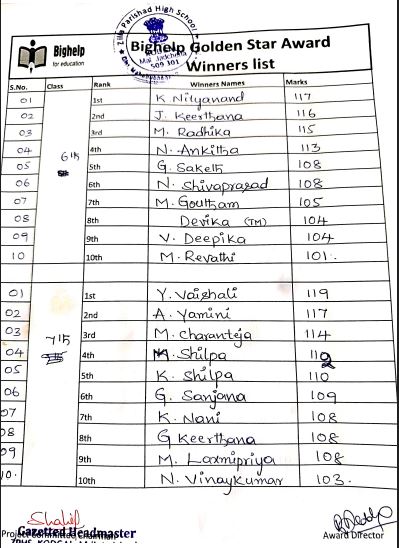 Zilla Parishad High School
509 301
Bighelp
for education
Bighelp Golden Star Award
Winners list
S.No. Class Rank Winners Names Marks
01 1st K Nityanand 117
02 2nd J. Keerthana 116
03 3rd M. Radhika 115
04 4th N. Ankitha 113
05 6th 5th G. Saketh 108
06 6th N. Shivaprasad 108
07 7th M. Goutham 105
08 8th Devika (TM) 104
09 9th V. Deepika 104
10 10th M. Revathi 101.
01 1st Y. Vaishali 119
02 2nd A. Yamini 117
03 7th 3rd M. Charanteja 114
04 4th M. Shilpa 112
05 5th K. Shilpa 110
06 6th G. Sanjana 109
07 7th K. Nani 108
08 8th G Keerthana 108
09 9th M. Laxmipriya 108
10. 10th N. Vinaykumar 103.
Gazetted Headmaster
Award Director